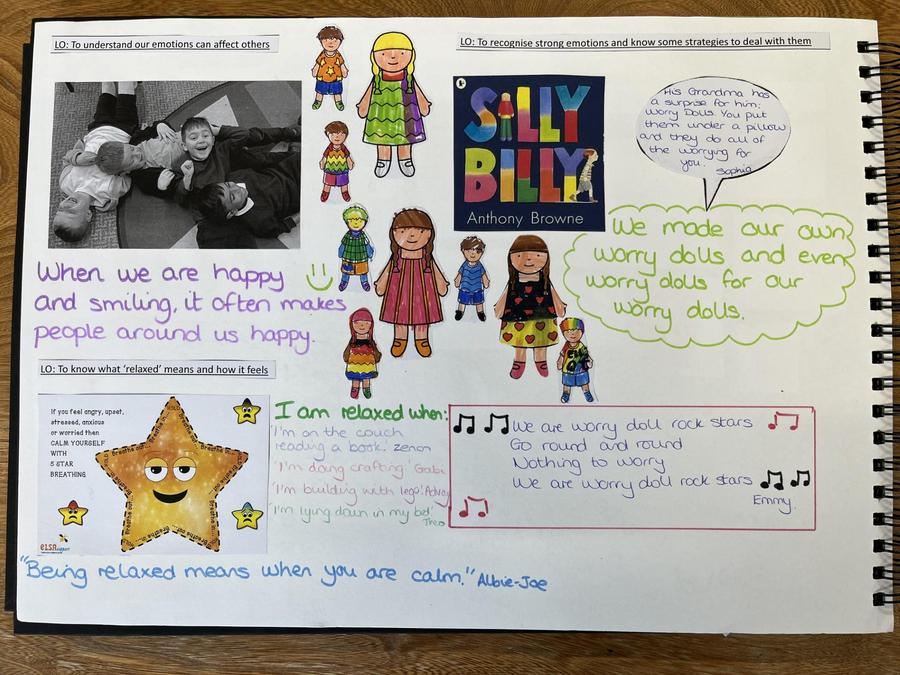 LO: To understand our emotions can affect others
When we are happy
and smiling, it often makes
people around us happy.
LO: To recognise strong emotions and know some strategies to deal with them
SILLY
BILLY
Anthony Browne
His Grandma has
a surprise for him:
Worry Dolls. You put
them under a pillow
and they do all of
the worrying for
you.
Sophia
We made our own
worry dolls and even
worry dolls for our
worry dolls.
LO: To know what 'relaxed' means and how it feels
If you feel angry, upset,
stressed, anxious
or worried then
CALM YOURSELF
WITH
5 STAR
BREATHING
ELSA support
I am relaxed when:
'I'm on the couch
reading a book.' Zenon
'I'm doing crafting.' Gabi
'I'm building with lego'. Advay
'I'm lying down in my bed'
Theo
We are worry doll rock stars
Go round and round
Nothing to worry
We are worry doll rock stars
Emmy.
"Being relaxed means when you are calm." Albie-Joe